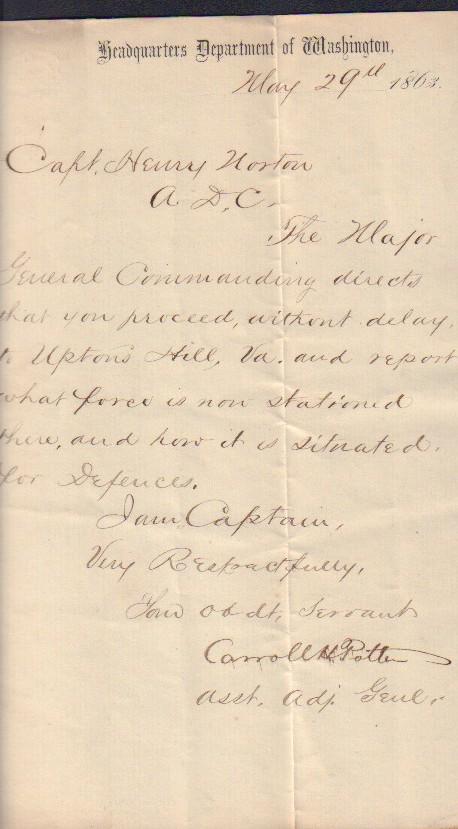 Headquarters Department of Washington,
May 29th 1863.
Capt. Henry Norton
A. D. C.
The Major
General Commanding directs
that you proceed, without delay,
to Upton's Hill, Va. and report
what force is now stationed
there, and how it is situated
for Defences.
I am, Captain,
Very Respectfully,
Your obdt, Servant
Carroll H. Potter
Asst. Adj. Genl.